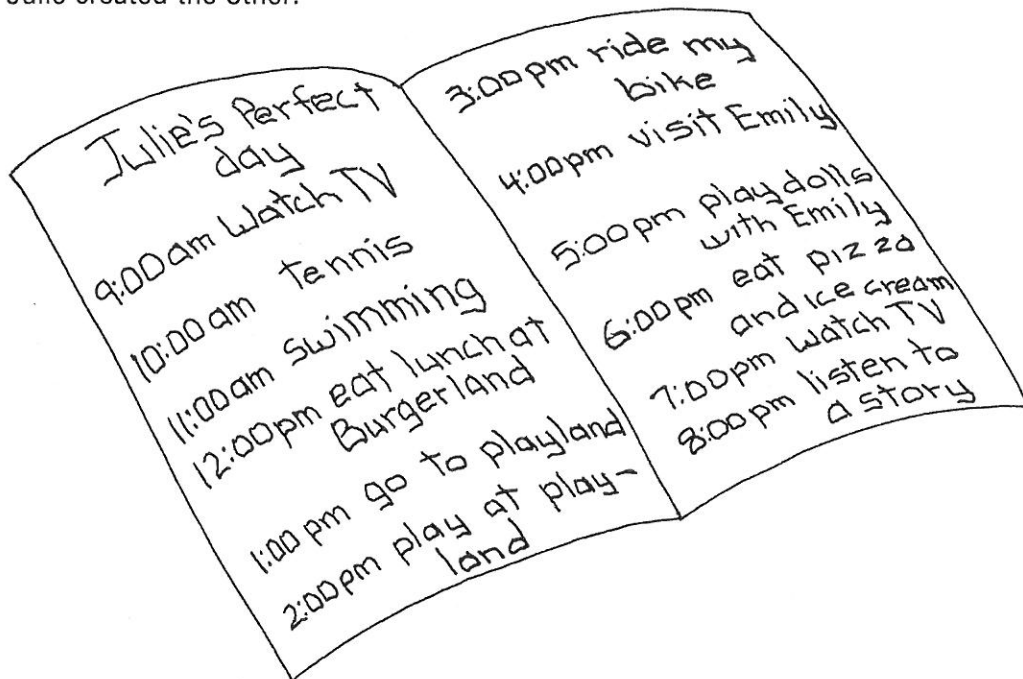 Julie created the other.
Julie's Perfect
day
9:00am Watch TV
10:00am tennis
11:00am swimming
12:00pm eat lunch at
Burgerland
1:00pm go to playland
2:00pm play at play-
land
3:00pm ride my
bike
4:00pm visit Emily
5:00pm play dolls
with Emily
6:00pm eat pizza
and ice cream
7:00pm watch TV
8:00pm listen to
a story